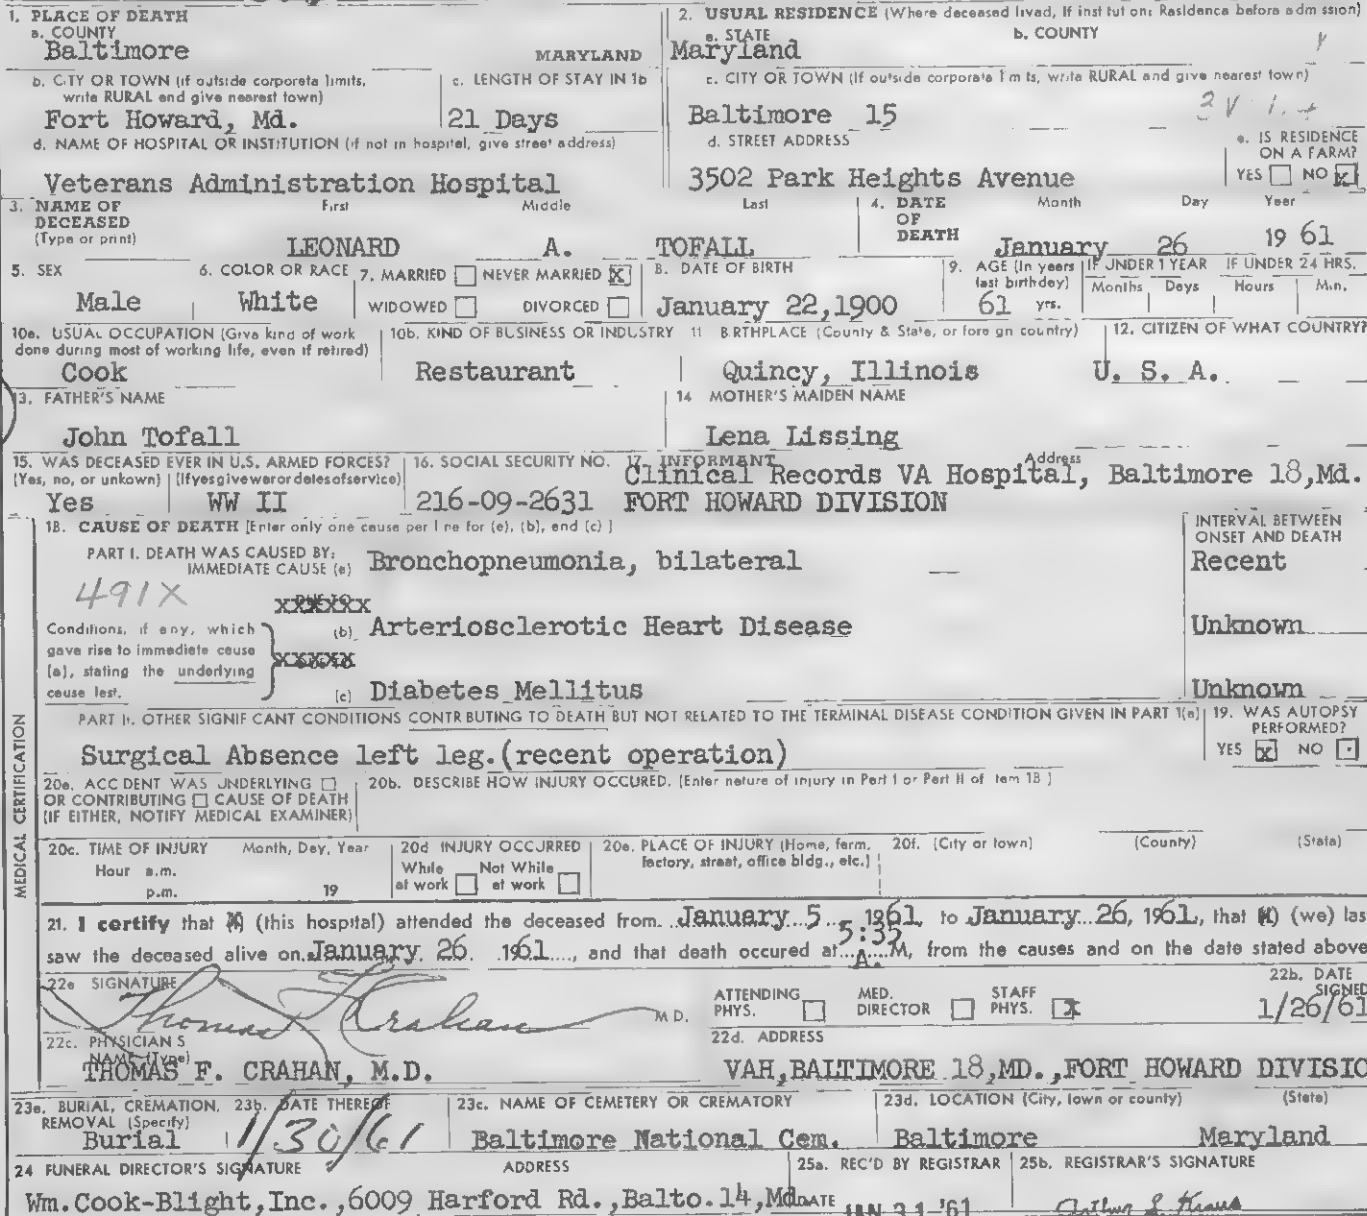 1. PLACE OF DEATH
a. COUNTY
Baltimore MARYLAND
2. USUAL RESIDENCE (Where deceased lived, If institution: Residence before admission)
a. STATE b. COUNTY
Maryland
b. CITY OR TOWN (if outside corporate limits, write RURAL and give nearest town)
Fort Howard, Md.
c. LENGTH OF STAY IN 1b
21 Days
c. CITY OR TOWN (If outside corporate limits, write RURAL and give nearest town)
Baltimore 15
d. NAME OF HOSPITAL OR INSTITUTION (if not in hospital, give street address)
Veterans Administration Hospital
d. STREET ADDRESS
3502 Park Heights Avenue
e. IS RESIDENCE ON A FARM?
YES NO X
3. NAME OF DECEASED (Type or print)
First Middle Last
LEONARD A. TOFALL
4. DATE OF DEATH
Month Day Year
January 26 19 61
5. SEX
Male
6. COLOR OR RACE
White
7. MARRIED NEVER MARRIED X
WIDOWED DIVORCED
8. DATE OF BIRTH
January 22,1900
9. AGE (In years last birthday)
61 yrs.
IF UNDER 1 YEAR IF UNDER 24 HRS.
Months Days Hours Min.
10a. USUAL OCCUPATION (Give kind of work done during most of working life, even if retired)
Cook
10b. KIND OF BUSINESS OR INDUSTRY
Restaurant
11 BIRTHPLACE (County & State, or foreign country)
Quincy, Illinois
12. CITIZEN OF WHAT COUNTRY?
U. S. A.
13. FATHER'S NAME
John Tofall
14 MOTHER'S MAIDEN NAME
Lena Lissing
15. WAS DECEASED EVER IN U.S. ARMED FORCES?
(Yes, no, or unkown) (If yes give war or dates of service)
Yes WW II
16. SOCIAL SECURITY NO.
216-09-2631
17. INFORMANT Address
Clinical Records VA Hospital, Baltimore 18,Md.
FORT HOWARD DIVISION
18. CAUSE OF DEATH [Enter only one cause per line for (a), (b), and (c)]
INTERVAL BETWEEN ONSET AND DEATH
PART I. DEATH WAS CAUSED BY:
IMMEDIATE CAUSE (a) Bronchopneumonia, bilateral Recent
491X
DUE TO
Conditions, if any, which gave rise to immediate cause (a), stating the underlying cause last.
(b) Arteriosclerotic Heart Disease Unknown
DUE TO
(c) Diabetes Mellitus Unknown
PART II. OTHER SIGNIFICANT CONDITIONS CONTRIBUTING TO DEATH BUT NOT RELATED TO THE TERMINAL DISEASE CONDITION GIVEN IN PART 1(a)
Surgical Absence left leg.(recent operation)
19. WAS AUTOPSY PERFORMED?
YES X NO
MEDICAL CERTIFICATION
20a. ACCIDENT WAS UNDERLYING
OR CONTRIBUTING CAUSE OF DEATH
(IF EITHER, NOTIFY MEDICAL EXAMINER)
20b. DESCRIBE HOW INJURY OCCURED. (Enter nature of injury in Part I or Part II of item 18)
20c. TIME OF INJURY Month, Day, Year
Hour a.m.
p.m. 19
20d INJURY OCCURRED
While at work Not While at work
20e. PLACE OF INJURY (Home, farm, factory, street, office bldg., etc.)
20f. (City or town) (County) (State)
21. I certify that (this hospital) attended the deceased from January 5 1961 to January 26, 1961, that (we) las
saw the deceased alive on January 26. 1961, and that death occured at 5:35 A. M, from the causes and on the date stated above
22a SIGNATURE
Thomas F Crahan M D.
ATTENDING PHYS. MED. DIRECTOR STAFF PHYS. X
22b. DATE SIGNED
1/26/61
22c. PHYSICIAN S NAME (Type)
THOMAS F. CRAHAN, M.D.
22d. ADDRESS
VAH,BALTIMORE 18,MD.,FORT HOWARD DIVISIO
23a. BURIAL, CREMATION, REMOVAL (Specify)
Burial
23b. DATE THEREOF
1/30/61
23c. NAME OF CEMETERY OR CREMATORY
Baltimore National Cem.
23d. LOCATION (City, town or county) (State)
Baltimore Maryland
24 FUNERAL DIRECTOR'S SIGNATURE ADDRESS
Wm.Cook-Blight,Inc.,6009 Harford Rd.,Balto.14,Md
25a. REC'D BY REGISTRAR
DATE JAN 31 '61
25b. REGISTRAR'S SIGNATURE